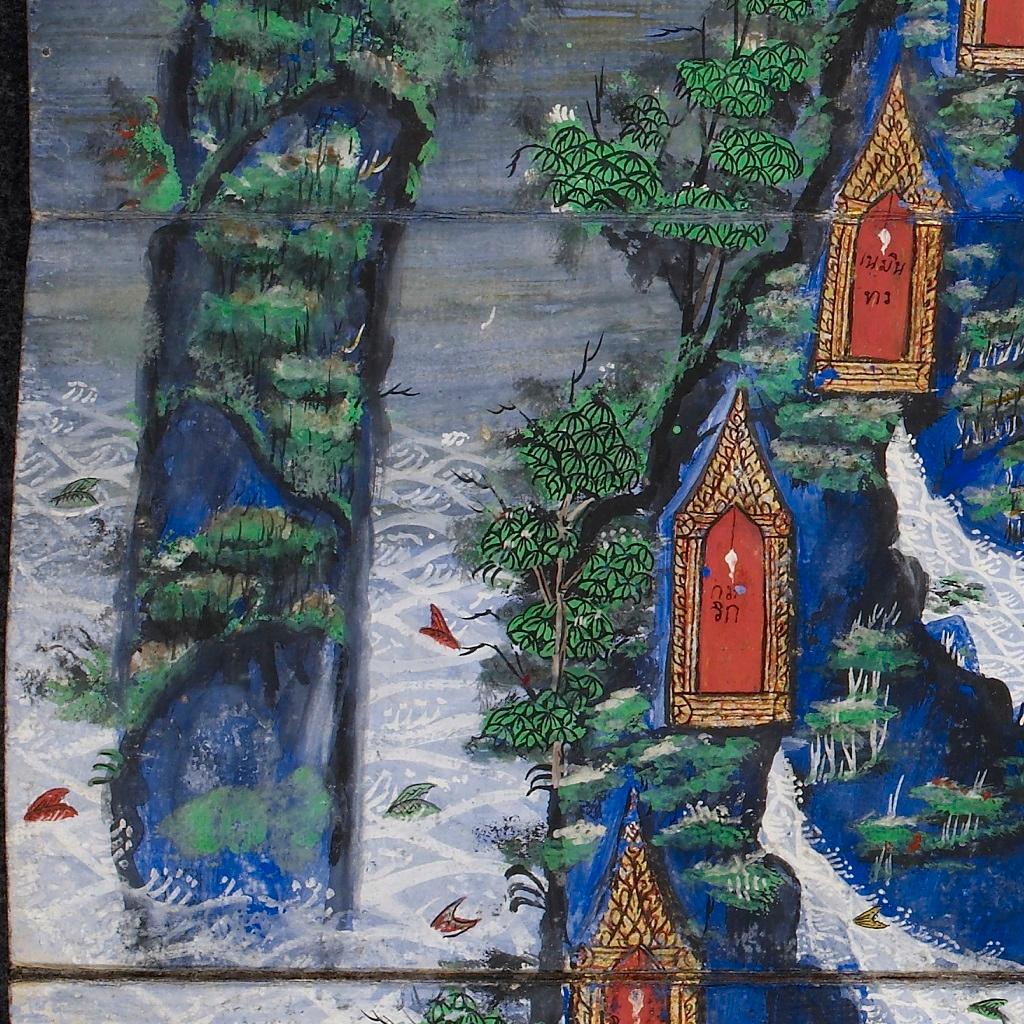 เนมิน
ทร
กร
วิก